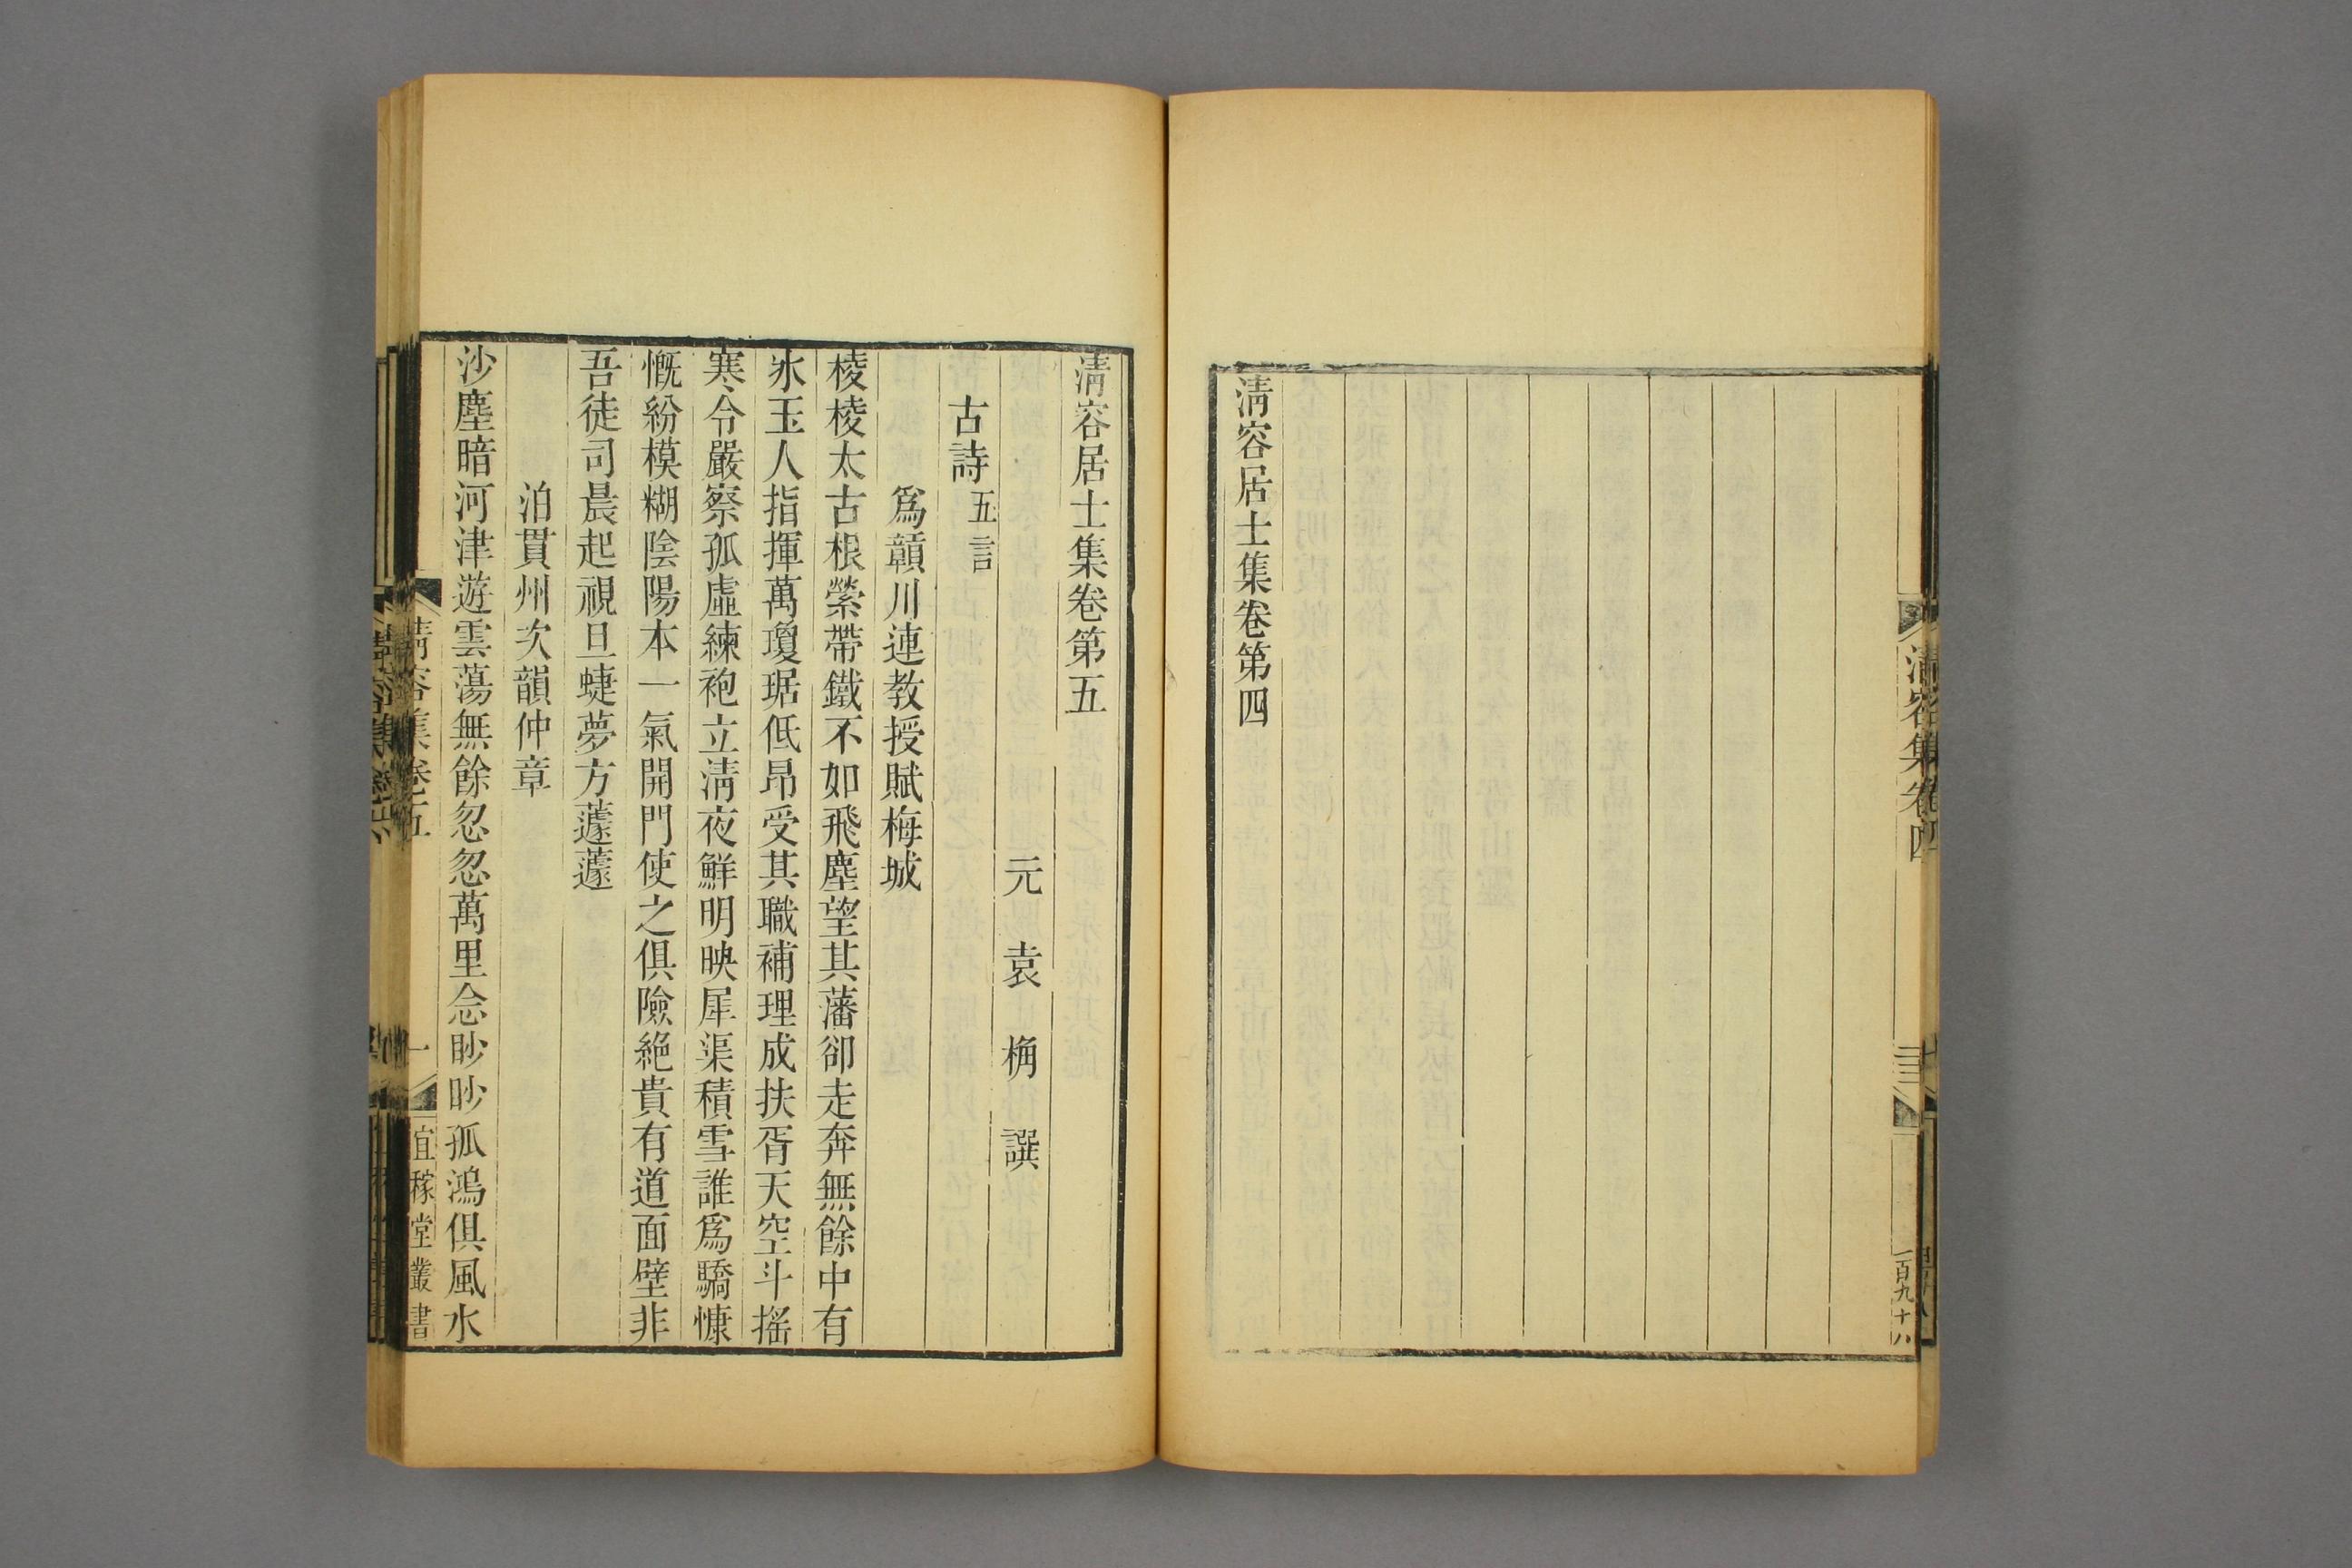 清容集卷四
三三
一百九十八
清容居士集卷第四
清容居士集卷第五
元　袁　桷　譔
古詩五言
爲贛川連教授賦梅城
棱棱太古根縈帶鐵不如飛塵望其藩卻走奔無餘中有
氷玉人指揮萬瓊琚低昂受其職補理成扶胥天空斗搖
寒令嚴察孤虛練袍立清夜鮮明映犀渠積雪誰爲驕慷
慨紛模糊陰陽本一氣開門使之俱險絕貴有道面壁非
吾徒司晨起視旦蜨夢方蘧蘧
泊貫州次韻仲章
沙塵暗河津遊雲蕩無餘忽忽萬里念眇眇孤鴻俱風水
清容集卷五
一
宜稼堂叢書